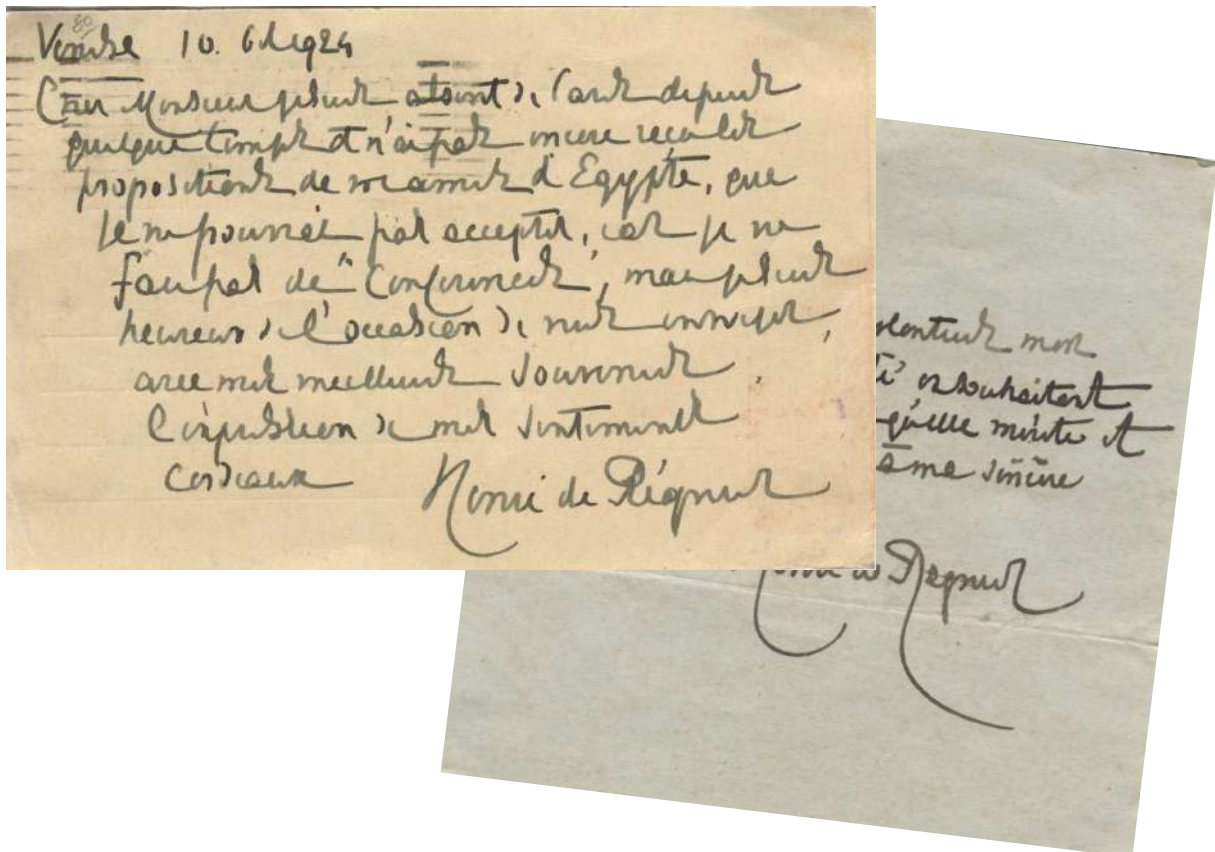 Venise 10. 6 1924
Cher Monsieur je suis absent de Paris depuis
quelque temps et n'ai pas encore reçu les
propositions de vos amis d'Egypte, que
je ne pourrai pas accepter, car je ne
fais pas de "Conférences", mais je suis
heureux de l'occasion de vous envoyer,
avec mes meilleurs souvenirs,
l'expression de mes sentiments
cordiaux Henri de Régnier
mon
en souhaitant
qu'elle mérite et
à ma sincère
Henri de Régnier